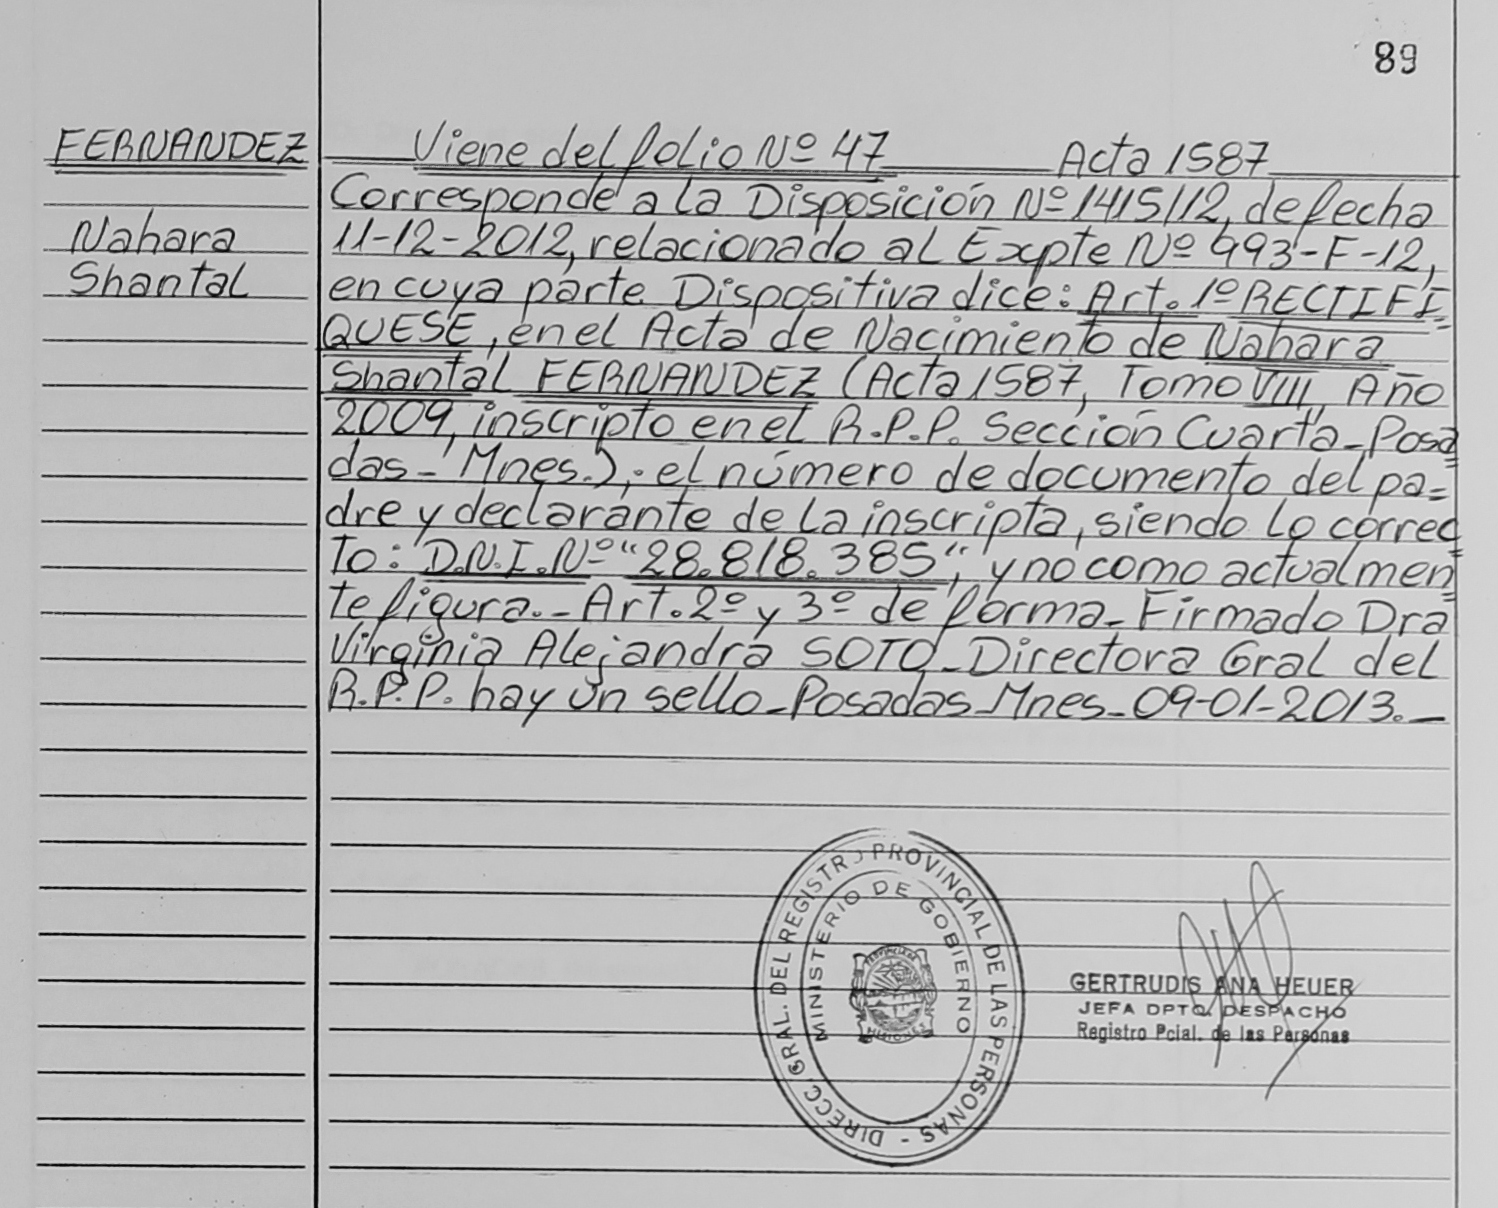 89
FERNANDEZ
Nahara
Shantal
Viene del folio Nº 47 Acta 1587
Corresponde a la Disposición Nº 1415/12, de fecha
11-12-2012, relacionado al Expte Nº 993-F-12,
en cuya parte Dispositiva dice: Art. 1º RECTIFI=
QUESE, en el Acta de Nacimiento de Nahara
Shantal FERNANDEZ (Acta 1587, Tomo VIII, Año
2009, inscripto en el R.P.P. Sección Cuarta-Posa=
das-Mnes.), el número de documento del pa=
dre y declarante de la inscripta, siendo lo correc=
to: D.N.I. Nº "28.818.385", y no como actualmen=
te figura.- Art. 2º y 3º de forma- Firmado Dra
Virginia Alejandra SOTO-Directora Gral del
R.P.P. hay un sello-Posadas-Mnes-09-01-2013.-
DIRECC. GRAL. DEL REGISTRO PROVINCIAL DE LAS PERSONAS -
MINISTERIO DE GOBIERNO
MISIONES
GERTRUDIS ANA HEUER
JEFA DPTO. DESPACHO
Registro Pcial. de las Personas